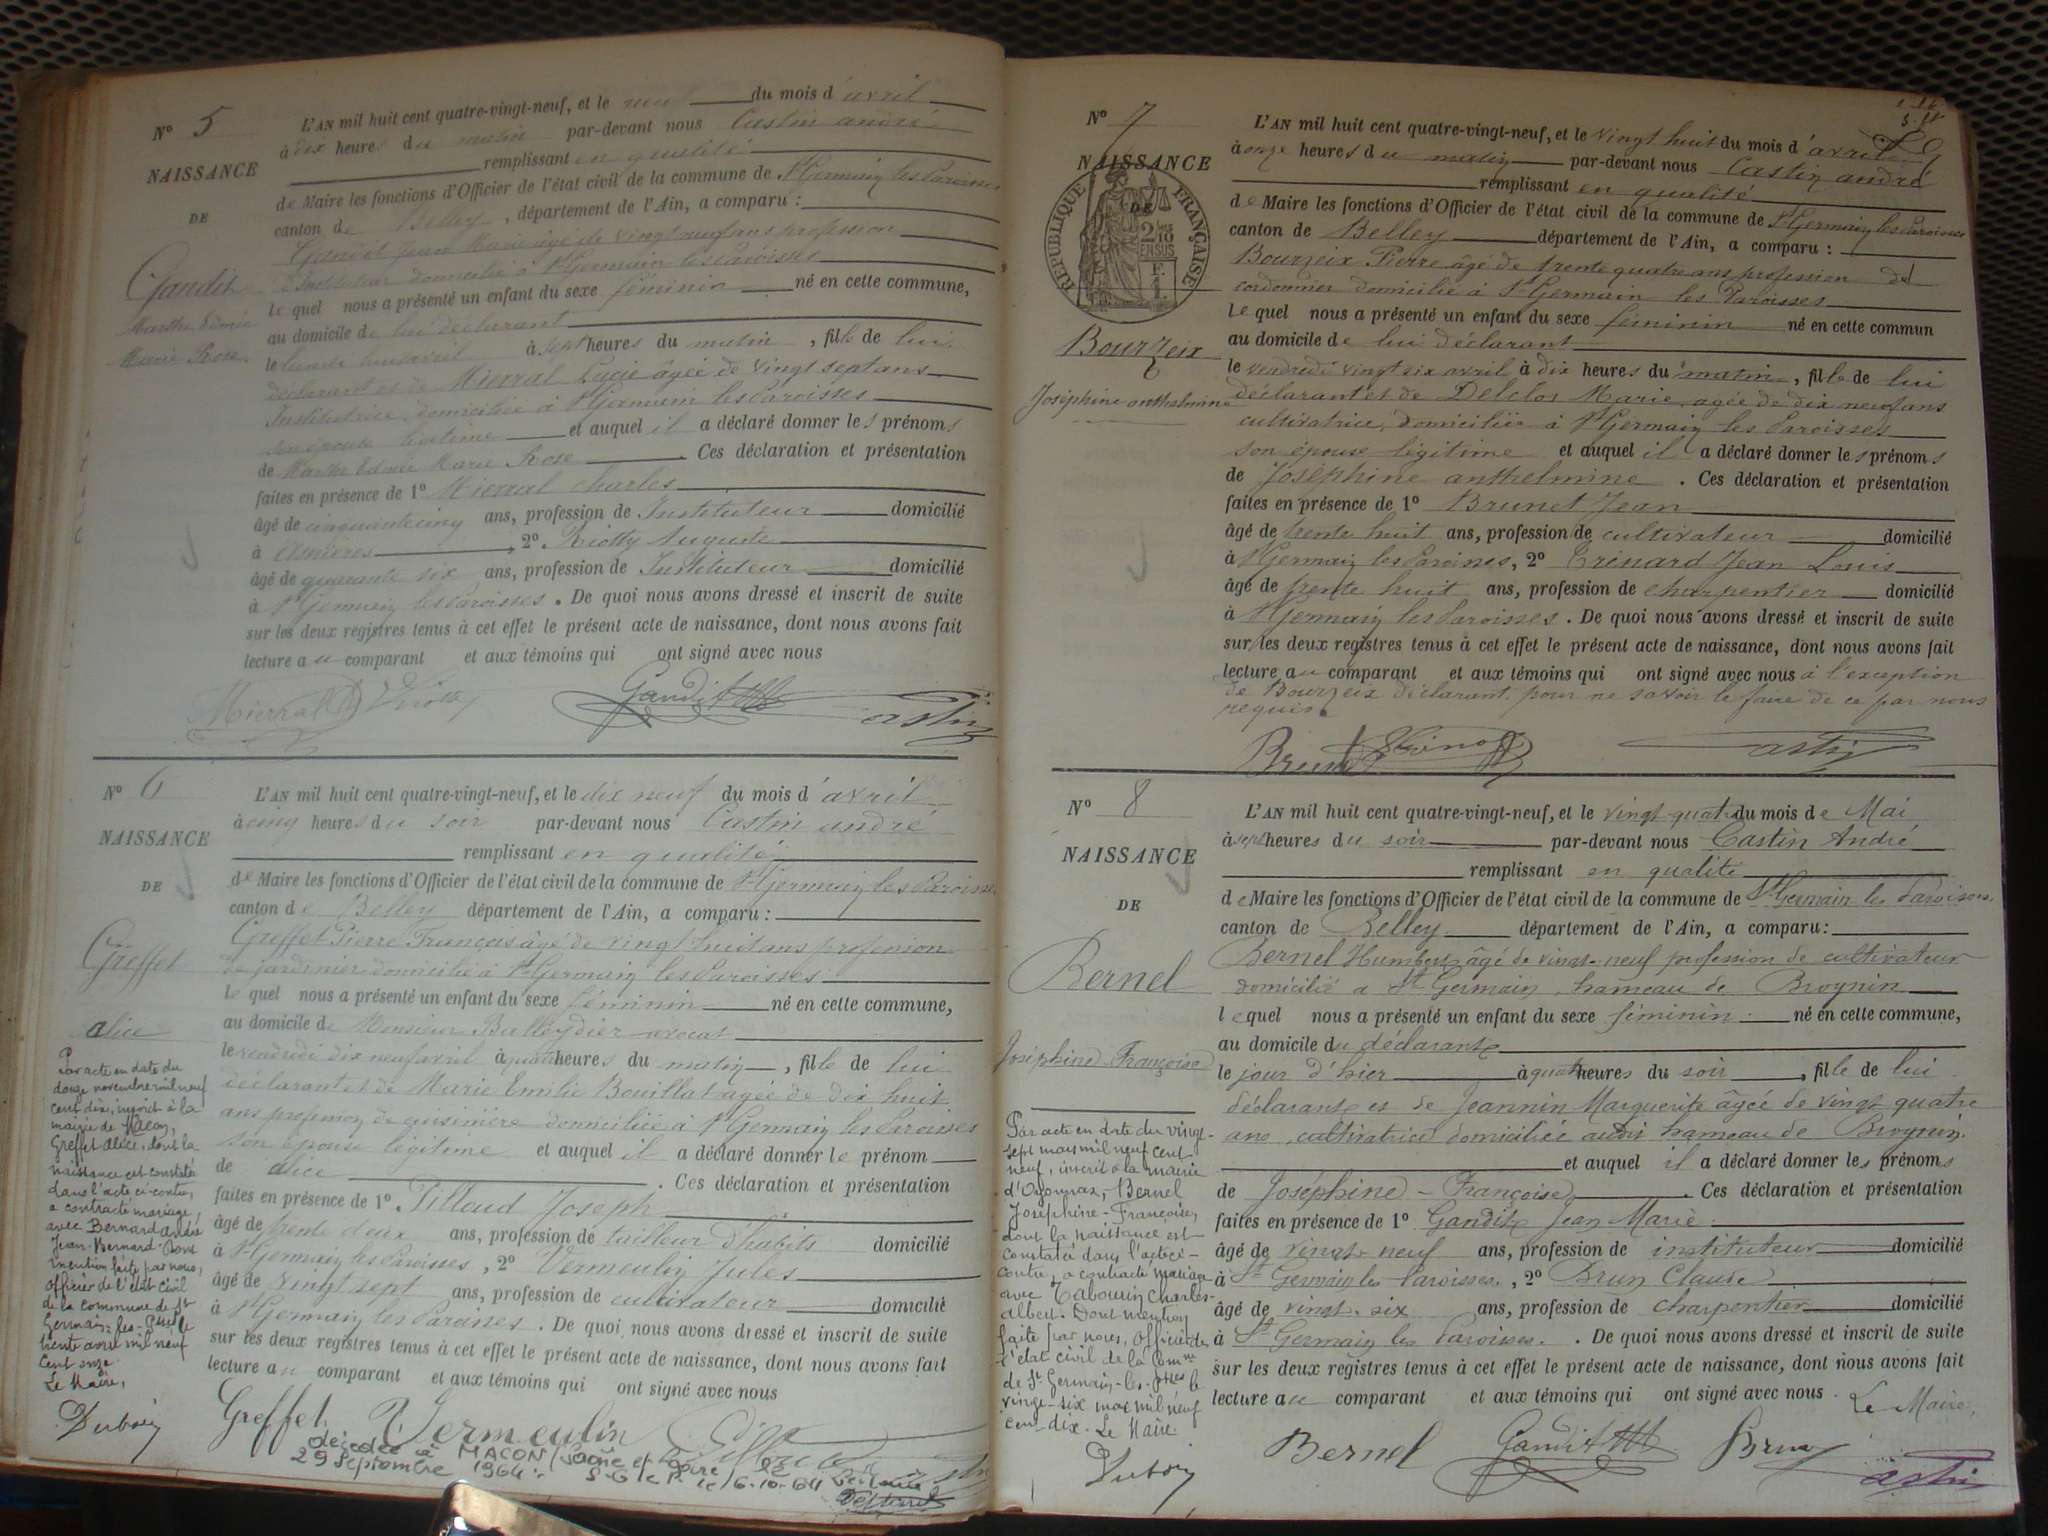 N° 5
NAISSANCE
DE
Gandit
Marthe Edmée
Marie Rose.
L'AN mil huit cent quatre-vingt-neuf, et le neuf du mois d'avril
à dix heures du matin par-devant nous Castin andré
remplissant en qualité
de Maire les fonctions d'Officier de l'état civil de la commune de St Germain les Paroisses
canton de Belley, département de l'Ain, a comparu :
Gandit Jean Marie âgé de vingt neuf ans profession
d'Instituteur domicilié à St Germain les Paroisses
le quel nous a présenté un enfant du sexe féminin né en cette commune,
au domicile de lui déclarant
le avril à sept heures du matin, fille de lui
déclarant et de Mierral Lucie âgée de vingt sept ans
Institutrice, domiciliée à St Germain les Paroisses
son épouse légitime et auquel il a déclaré donner les prénoms
de Marthe Edmée Marie Rose. Ces déclaration et présentation
faites en présence de 1° Mierral charles
âgé de cinquante cinq ans, profession de Instituteur domicilié
à, 2°. Auguste
âgé de quarante six ans, profession de Instituteur domicilié
à St Germain les Paroisses. De quoi nous avons dressé et inscrit de suite
sur les deux registres tenus à cet effet le présent acte de naissance, dont nous avons fait
lecture au comparant et aux témoins qui ont signé avec nous
Mierral Gandit Castin
N° 6
NAISSANCE
DE
Greffet
alice
L'AN mil huit cent quatre-vingt-neuf, et le dix neuf du mois d'avril
à cinq heures du soir par-devant nous Castin andré
remplissant en qualité
de Maire les fonctions d'Officier de l'état civil de la commune de St Germain les Paroisses
canton de Belley département de l'Ain, a comparu :
Greffet Pierre François âgé de vingt huit ans profession
de jardinier domicilié à St Germain les Paroisses
le quel nous a présenté un enfant du sexe féminin né en cette commune,
au domicile de Monsieur Balleydier avocat
le vendredi dix neuf avril à quatre heures du matin, fille de lui
déclarant et de Marie Emilie Bouillat agée de dix huit
ans profession de cuisinière domiciliée à St Germain les Paroisses
son épouse légitime et auquel il a déclaré donner le prénom
de alice. Ces déclaration et présentation
faites en présence de 1°. Pilloud Joseph
âgé de trente deux ans, profession de tailleur d'habits domicilié
à St Germain les Paroisses, 2° Vermeulin Jules
âgé de vingt sept ans, profession de cultivateur domicilié
à St Germain les Paroisses. De quoi nous avons dressé et inscrit de suite
sur les deux registres tenus à cet effet le présent acte de naissance, dont nous avons fait
lecture au comparant et aux témoins qui ont signé avec nous
Greffet Vermeulin Pilloud Castin
Par acte en date du
douze novembre mil neuf
cent dix, inscrit à la
mairie de Mâcon,
Greffet Alice, dont la
naissance est constatée
dans l'acte ci-contre,
a contracté mariage,
avec Bernard André
Jean-Bernard. Dont
mention faite par nous,
Officier de l'état civil
de la commune de St
Germain-les-Pses le
trente avril mil neuf
cent onze.
Le Maire,
Dubois
décédée à MACON/Saône et Loire/ le
29 Septembre 1964.-
le 6-10-64
N° 7
NAISSANCE
DE
RÉPUBLIQUE FRANÇAISE
2/10
EN SUS
F.
1.
Bourzeix
Joséphine anthelmine
L'AN mil huit cent quatre-vingt-neuf, et le vingt huit du mois d'avril
à onze heures du matin par-devant nous Castin andré
remplissant en qualité
de Maire les fonctions d'Officier de l'état civil de la commune de St Germain les Paroisses
canton de Belley département de l'Ain, a comparu :
Bourzeix Pierre âgé de trente quatre ans profession de
cordonnier domicilié à St Germain les Paroisses
le quel nous a présenté un enfant du sexe féminin né en cette commun
au domicile de lui déclarant
le vendredi vingt six avril à dix heures du matin, fille de lui
déclarant et de Delclos Marie, agée de dix neuf ans
cultivatrice, domiciliée à St Germain les Paroisses
son épouse légitime et auquel il a déclaré donner les prénoms
de Joséphine anthelmine. Ces déclaration et présentation
faites en présence de 1° Brunet Jean
âgé de trente huit ans, profession de cultivateur domicilié
à St Germain les Paroisses, 2° Jean Louis
âgé de trente huit ans, profession de charpentier domicilié
à St Germain les Paroisses. De quoi nous avons dressé et inscrit de suite
sur les deux registres tenus à cet effet le présent acte de naissance, dont nous avons fait
lecture au comparant et aux témoins qui ont signé avec nous à l'exception
de Bourzeix déclarant, pour ne savoir le faire de ce par nous
requis.
Brunet Castin
N° 8
NAISSANCE
DE
Bernel
Joséphine-Françoise
L'AN mil huit cent quatre-vingt-neuf, et le vingt-quatre du mois de Mai
à sept heures du soir par-devant nous Castin André
remplissant en qualité
de Maire les fonctions d'Officier de l'état civil de la commune de St Germain les Paroisses
canton de Belley département de l'Ain, a comparu :
Bernel Humbert, âgé de vingt-neuf profession de cultivateur
domicilié à St Germain, hameau de Brognin
lequel nous a présenté un enfant du sexe féminin né en cette commune,
au domicile du déclarant
le jour d'hier à quatre heures du soir, fille de lui
déclarant et de Jeannin Marguerite âgée de vingt quatre
ans, cultivatrice domiciliée audit hameau de Brognin.
et auquel il a déclaré donner les prénoms
de Joséphine-Françoise. Ces déclaration et présentation
faites en présence de 1° Gandit Jean Marie
âgé de vingt-neuf ans, profession de instituteur domicilié
à St Germain les Paroisses, 2° Brun Claude
âgé de vingt-six ans, profession de charpentier domicilié
à St Germain les Paroisses. De quoi nous avons dressé et inscrit de suite
sur les deux registres tenus à cet effet le présent acte de naissance, dont nous avons fait
lecture au comparant et aux témoins qui ont signé avec nous. Le Maire,
Bernel Gandit Brun Castin
Par acte en date du vingt-
sept mars mil neuf cent
neuf, inscrit à la mairie
d'Oyonnax, Bernel
Joséphine-Françoise,
dont la naissance est
constatée dans l'acte ci-
contre, a contracté mariage
avec Tabourin Charles-
albert. Dont mention
faite par nous, Officier de
l'état civil de la Comne
de St Germain-les-Pses le
vingt-six mai mil neuf
cent dix. Le Maire
Dubois